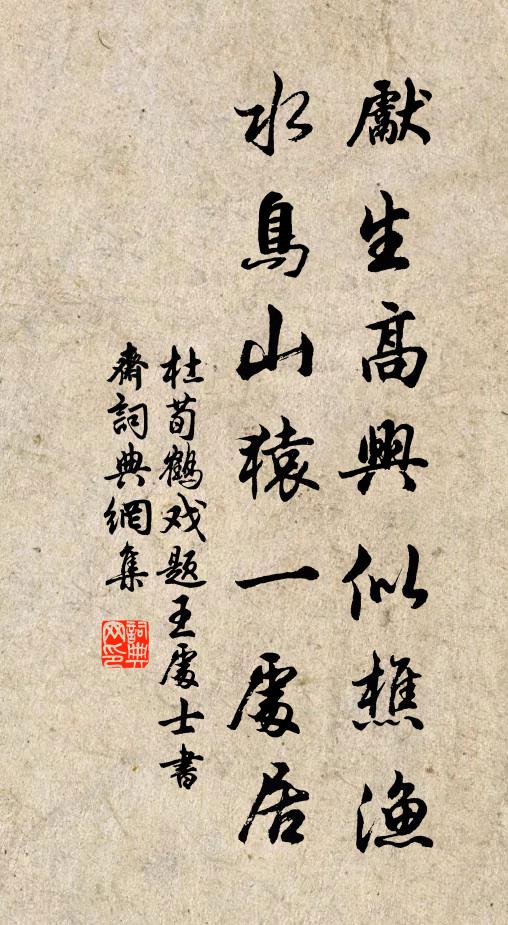 獻生高興似樵漁
水鳥山猿一處居
杜荀鶴戏题王處士書
齋詞典網集
詞典
网印